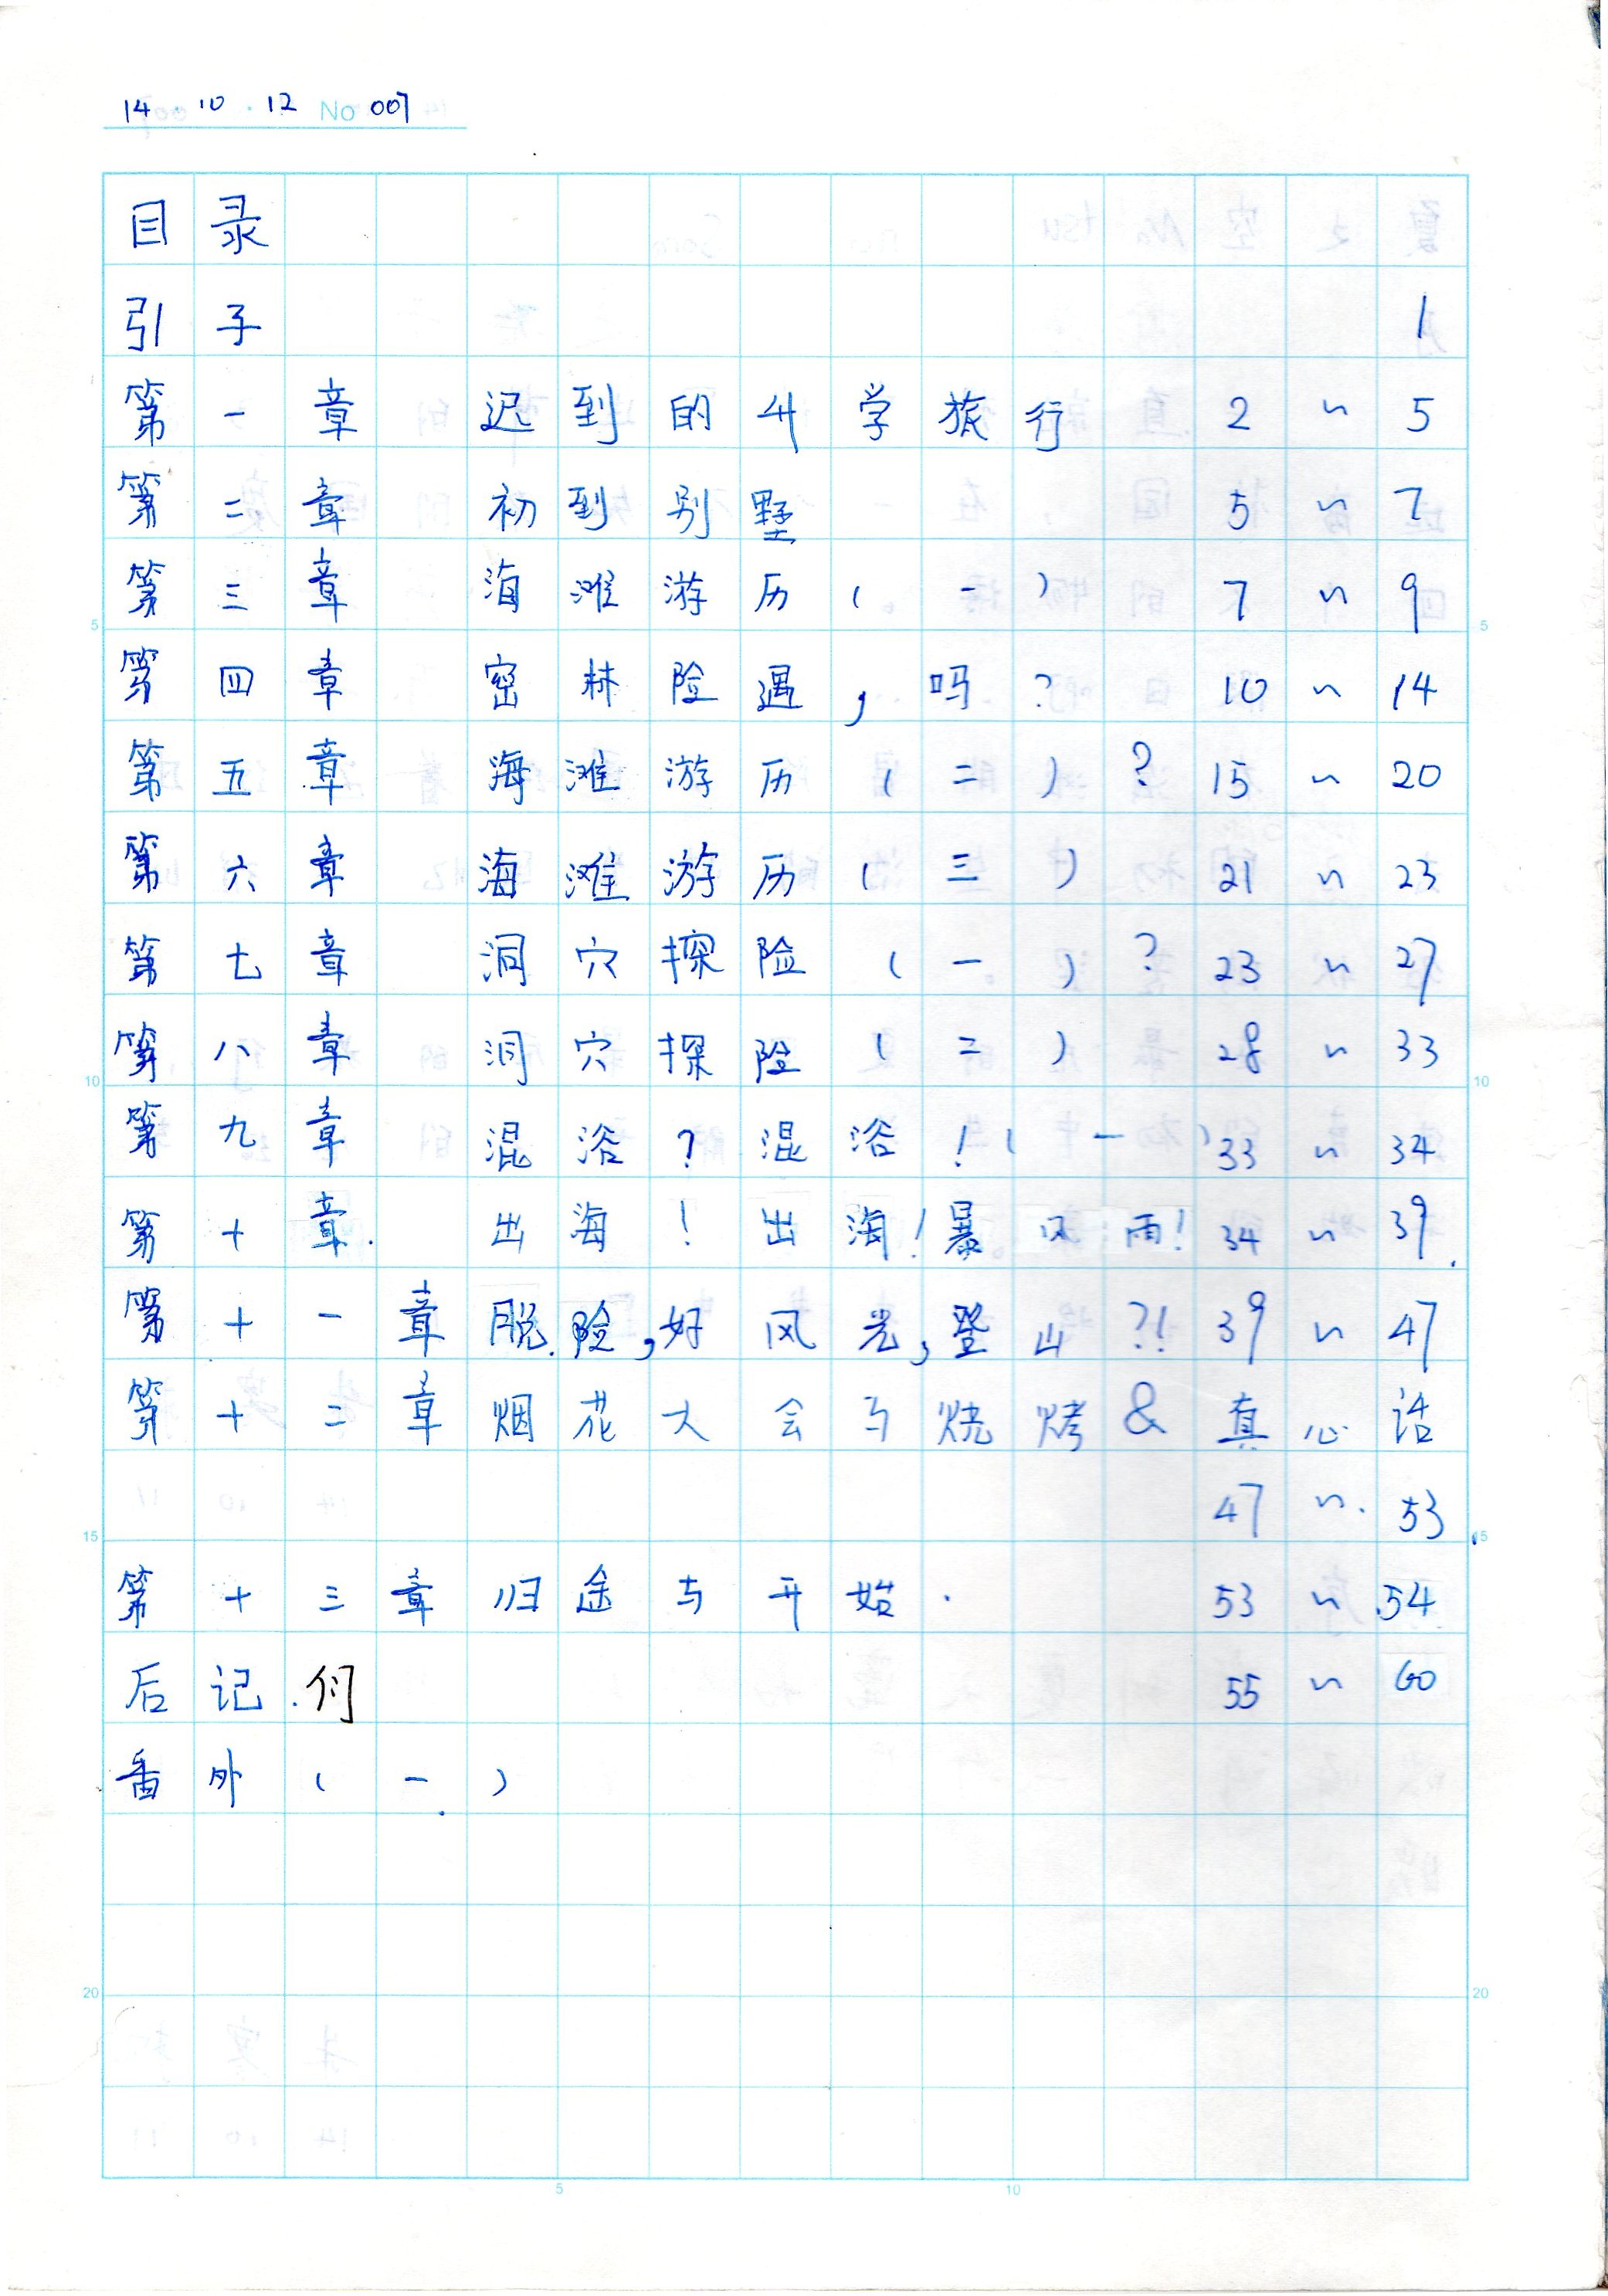 14 · 10 · 12 No 007
目录
引子 1
第一章 迟到的升学旅行 2~5
第二章 初到别墅 5~7
第三章 海滩游历(一) 7~9
第四章 密林险遇,吗? 10~14
第五章 海滩游历(二)? 15~20
第六章 海滩游历(三) 21~23
第七章 洞穴探险(一)? 23~27
第八章 洞穴探险(二) 28~33
第九章 混浴?混浴!(一) 33~34
第十章 出海!出海!暴风雨! 34~39
第十一章 脱险,好风光,登山?! 39~47
第十二章 烟花大会与烧烤&真心话
47~53
第十三章 归途与开始 53~54
后记 55~60
番外(一)
5 5
10 10
15 15
20 20
5 10